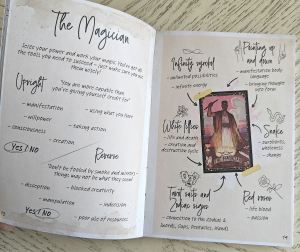 The Magician
Seize your power and work your magic. You've got all
the tools you need to succeed – just make sure you use
them wisely!
Upright
You are more capable than
you're giving yourself credit for!
- manifestation
- using what you have
- willpower
- taking action
- consciousness
- creation
YES / NO
Reverse
Don't be fooled by smoke and mirrors -
things may not be what they seem!
- deception
- blocked creativity
- manipulation
- indecision
YES / NO
- poor use of resources
Infinity symbol
- unlimited possibilities
- infinite energy
Pointing up
and down
- manifestation body
language
- bringing thought
into form
White lilies
- life and death
- creation and
destruction cycle
Snake
- wisdom
- change
THE MAGICIAN
Tarot suits and
Zodiac signs
- connection to the zodiac &
wands, cups, pentacles,
Red roses
- life blood
- passion